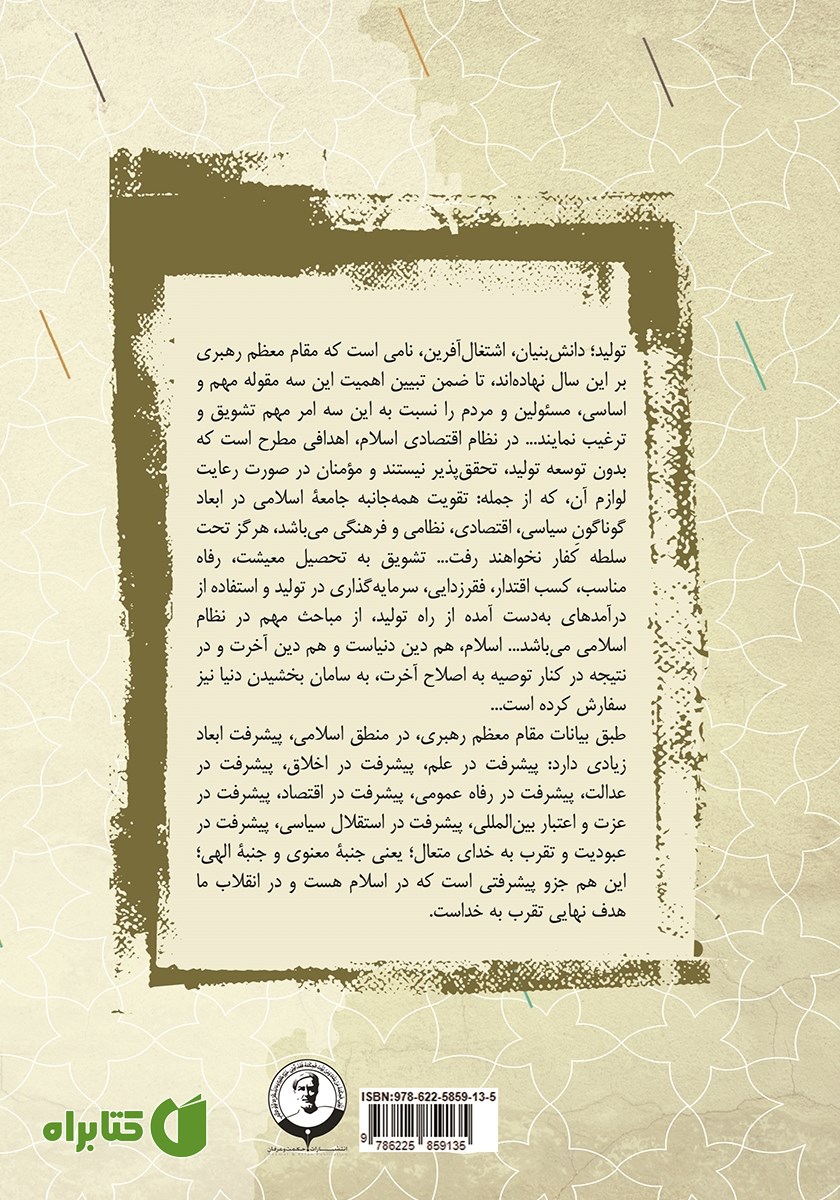 تولید؛ دانش‌بنیان، اشتغال‌آفرین، نامی است که مقام معظم رهبری
بر این سال نهاده‌اند، تا ضمن تبیین اهمیت این سه مقوله مهم و
اساسی، مسئولین و مردم را نسبت به این سه امر مهم تشویق و
ترغیب نمایند... در نظام اقتصادی اسلام، اهدافی مطرح است که
بدون توسعه تولید، تحقق‌پذیر نیستند و مؤمنان در صورت رعایت
لوازم آن، که از جمله: تقویت همه‌جانبه جامعهٔ اسلامی در ابعاد
گوناگونِ سیاسی، اقتصادی، نظامی و فرهنگی می‌باشد، هرگز تحت
سلطه کفار نخواهند رفت... تشویق به تحصیل معیشت، رفاه
مناسب، کسب اقتدار، فقرزدایی، سرمایه‌گذاری در تولید و استفاده از
درآمدهای به‌دست آمده از راه تولید، از مباحث مهم در نظام
اسلامی می‌باشد... اسلام، هم دین دنیاست و هم دین آخرت و در
نتیجه در کنار توصیه به اصلاح آخرت، به سامان بخشیدن دنیا نیز
سفارش کرده است...
طبق بیانات مقام معظم رهبری، در منطق اسلامی، پیشرفت ابعاد
زیادی دارد: پیشرفت در علم، پیشرفت در اخلاق، پیشرفت در
عدالت، پیشرفت در رفاه عمومی، پیشرفت در اقتصاد، پیشرفت در
عزت و اعتبار بین‌المللی، پیشرفت در استقلال سیاسی، پیشرفت در
عبودیت و تقرب به خدای متعال؛ یعنی جنبهٔ معنوی و جنبهٔ الهی؛
این هم جزو پیشرفتی است که در اسلام هست و در انقلاب ما
هدف نهایی تقرب به خداست.
ISBN:978-622-5859-13-5
9 786225 859135
انتشارات حکمت و عرفان
کتابراه